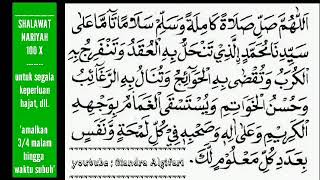 SHALAWAT
NARIYAH
100 X
--------
untuk segala
keperluan
hajat, dll.
'amalkan
3/4 malam
hingga
waktu subuh'
اَللّٰهُمَّ صَلِّ صَلَاةً كَامِلَةً وَسَلِّمْ سَلَامًا تَامًّا عَلَى
سَيِّدِنَا مُحَمَّدٍ الَّذِيْ تَنْحَلُّ بِهِ الْعُقَدُ وَتَنْفَرِجُ بِهِ
الْكُرَبُ وَتُقْضَى بِهِ الْحَوَائِجُ وَتُنَالُ بِهِ الرَّغَائِبُ
وَحُسْنُ الْخَوَاتِمِ وَيُسْتَسْقَى الْغَمَامُ بِوَجْهِهِ
الْكَرِيْمِ وَعَلَى اٰلِهِ وَصَحْبِهِ فِيْ كُلِّ لَمْحَةٍ وَنَفَسٍ
بِعَدَدِ كُلِّ مَعْلُوْمٍ لَكَ
youtube : Mandra Algifari